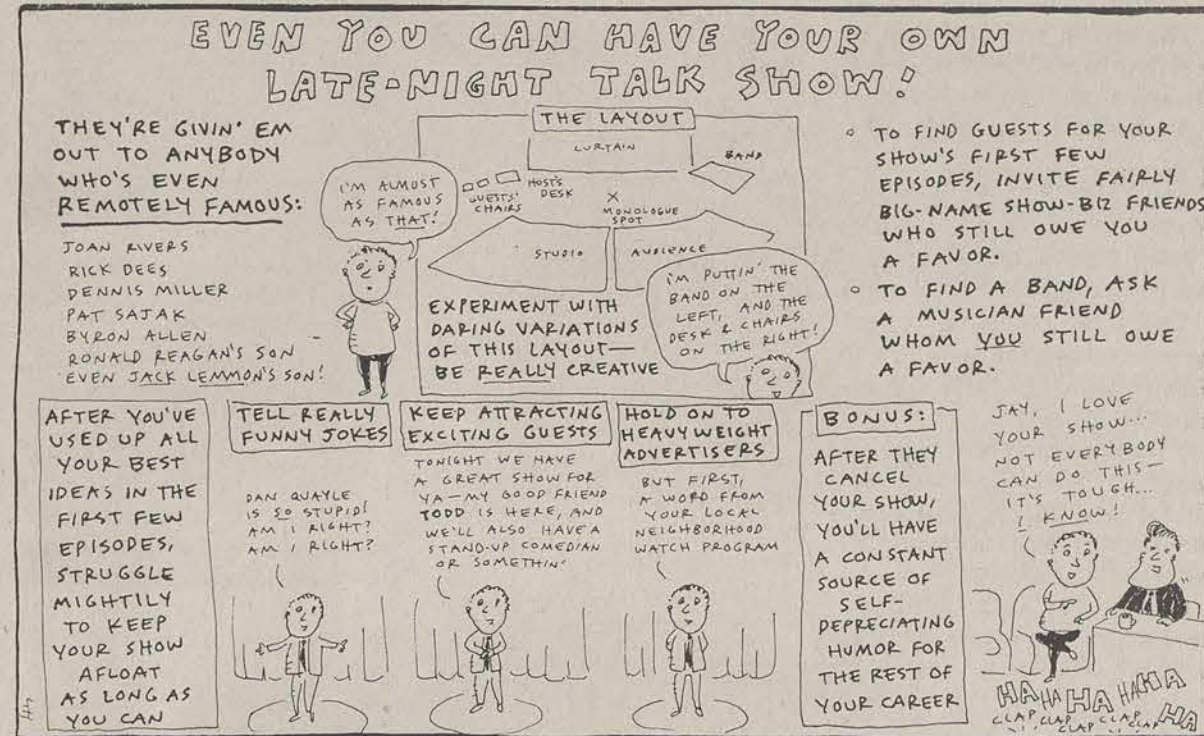 EVEN YOU CAN HAVE YOUR OWN
LATE-NIGHT TALK SHOW!
THEY'RE GIVIN' EM
OUT TO ANYBODY
WHO'S EVEN
REMOTELY FAMOUS:
JOAN RIVERS
RICK DEES
DENNIS MILLER
PAT SAJAK
BYRON ALLEN
RONALD REAGAN'S SON
EVEN JACK LEMMON'S SON!
I'M ALMOST
AS FAMOUS
AS THAT!
THE LAYOUT
CURTAIN
BAND
GUESTS'
CHAIRS
HOST'S
DESK
X
MONOLOGUE
SPOT
STUDIO
AUDIENCE
EXPERIMENT WITH
DARING VARIATIONS
OF THIS LAYOUT—
BE REALLY CREATIVE
I'M PUTTIN' THE
BAND ON THE
LEFT, AND THE
DESK & CHAIRS
ON THE RIGHT!
° TO FIND GUESTS FOR YOUR
SHOW'S FIRST FEW
EPISODES, INVITE FAIRLY
BIG-NAME SHOW-BIZ FRIENDS
WHO STILL OWE YOU
A FAVOR.
° TO FIND A BAND, ASK
A MUSICIAN FRIEND
WHOM YOU STILL OWE
A FAVOR.
AFTER YOU'VE
USED UP ALL
YOUR BEST
IDEAS IN THE
FIRST FEW
EPISODES,
STRUGGLE
MIGHTILY
TO KEEP
YOUR SHOW
AFLOAT
AS LONG AS
YOU CAN
TELL REALLY
FUNNY JOKES
DAN QUAYLE
IS SO STUPID!
AM I RIGHT?
AM I RIGHT?
KEEP ATTRACTING
EXCITING GUESTS
TONIGHT WE HAVE
A GREAT SHOW FOR
YA—MY GOOD FRIEND
TODD IS HERE, AND
WE'LL ALSO HAVE A
STAND-UP COMEDIAN
OR SOMETHIN'
HOLD ON TO
HEAVYWEIGHT
ADVERTISERS
BUT FIRST,
A WORD FROM
YOUR LOCAL
NEIGHBORHOOD
WATCH PROGRAM
BONUS:
AFTER THEY
CANCEL
YOUR SHOW,
YOU'LL HAVE
A CONSTANT
SOURCE OF
SELF-
DEPRECIATING
HUMOR FOR
THE REST OF
YOUR CAREER
JAY, I LOVE
YOUR SHOW...
NOT EVERYBODY
CAN DO THIS—
IT'S TOUGH...
I KNOW!
HA HA HA HA HA HA
CLAP CLAP CLAP CLAP CLAP